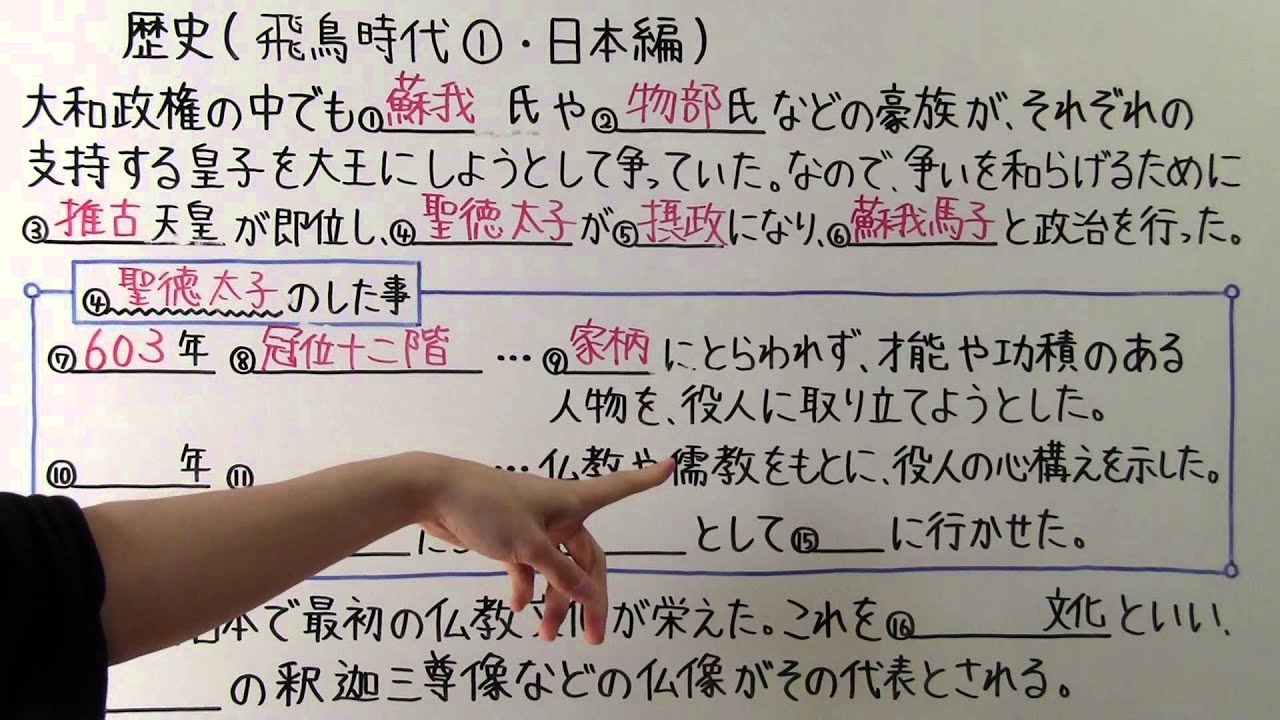 歴史(飛鳥時代①・日本編)
大和政権の中でも①蘇我 氏や②物部氏などの豪族が、それぞれの
支持する皇子を大王にしようとして争っていた。なので、争いを和らげるために
③推古天皇が即位し、④聖徳太子が⑤摂政になり、⑥蘇我馬子と政治を行った。
④聖徳太子のした事
⑦603年 ⑧冠位十二階 …⑨家柄にとらわれず、才能や功積のある
人物を、役人に取り立てようとした。
⑩ 年 ⑪ …仏教や儒教をもとに、役人の心構えを示した。
に として⑮ に行かせた。
日本で最初の仏教文化が栄えた。これを⑯ 文化といい、
の釈迦三尊像などの仏像がその代表とされる。